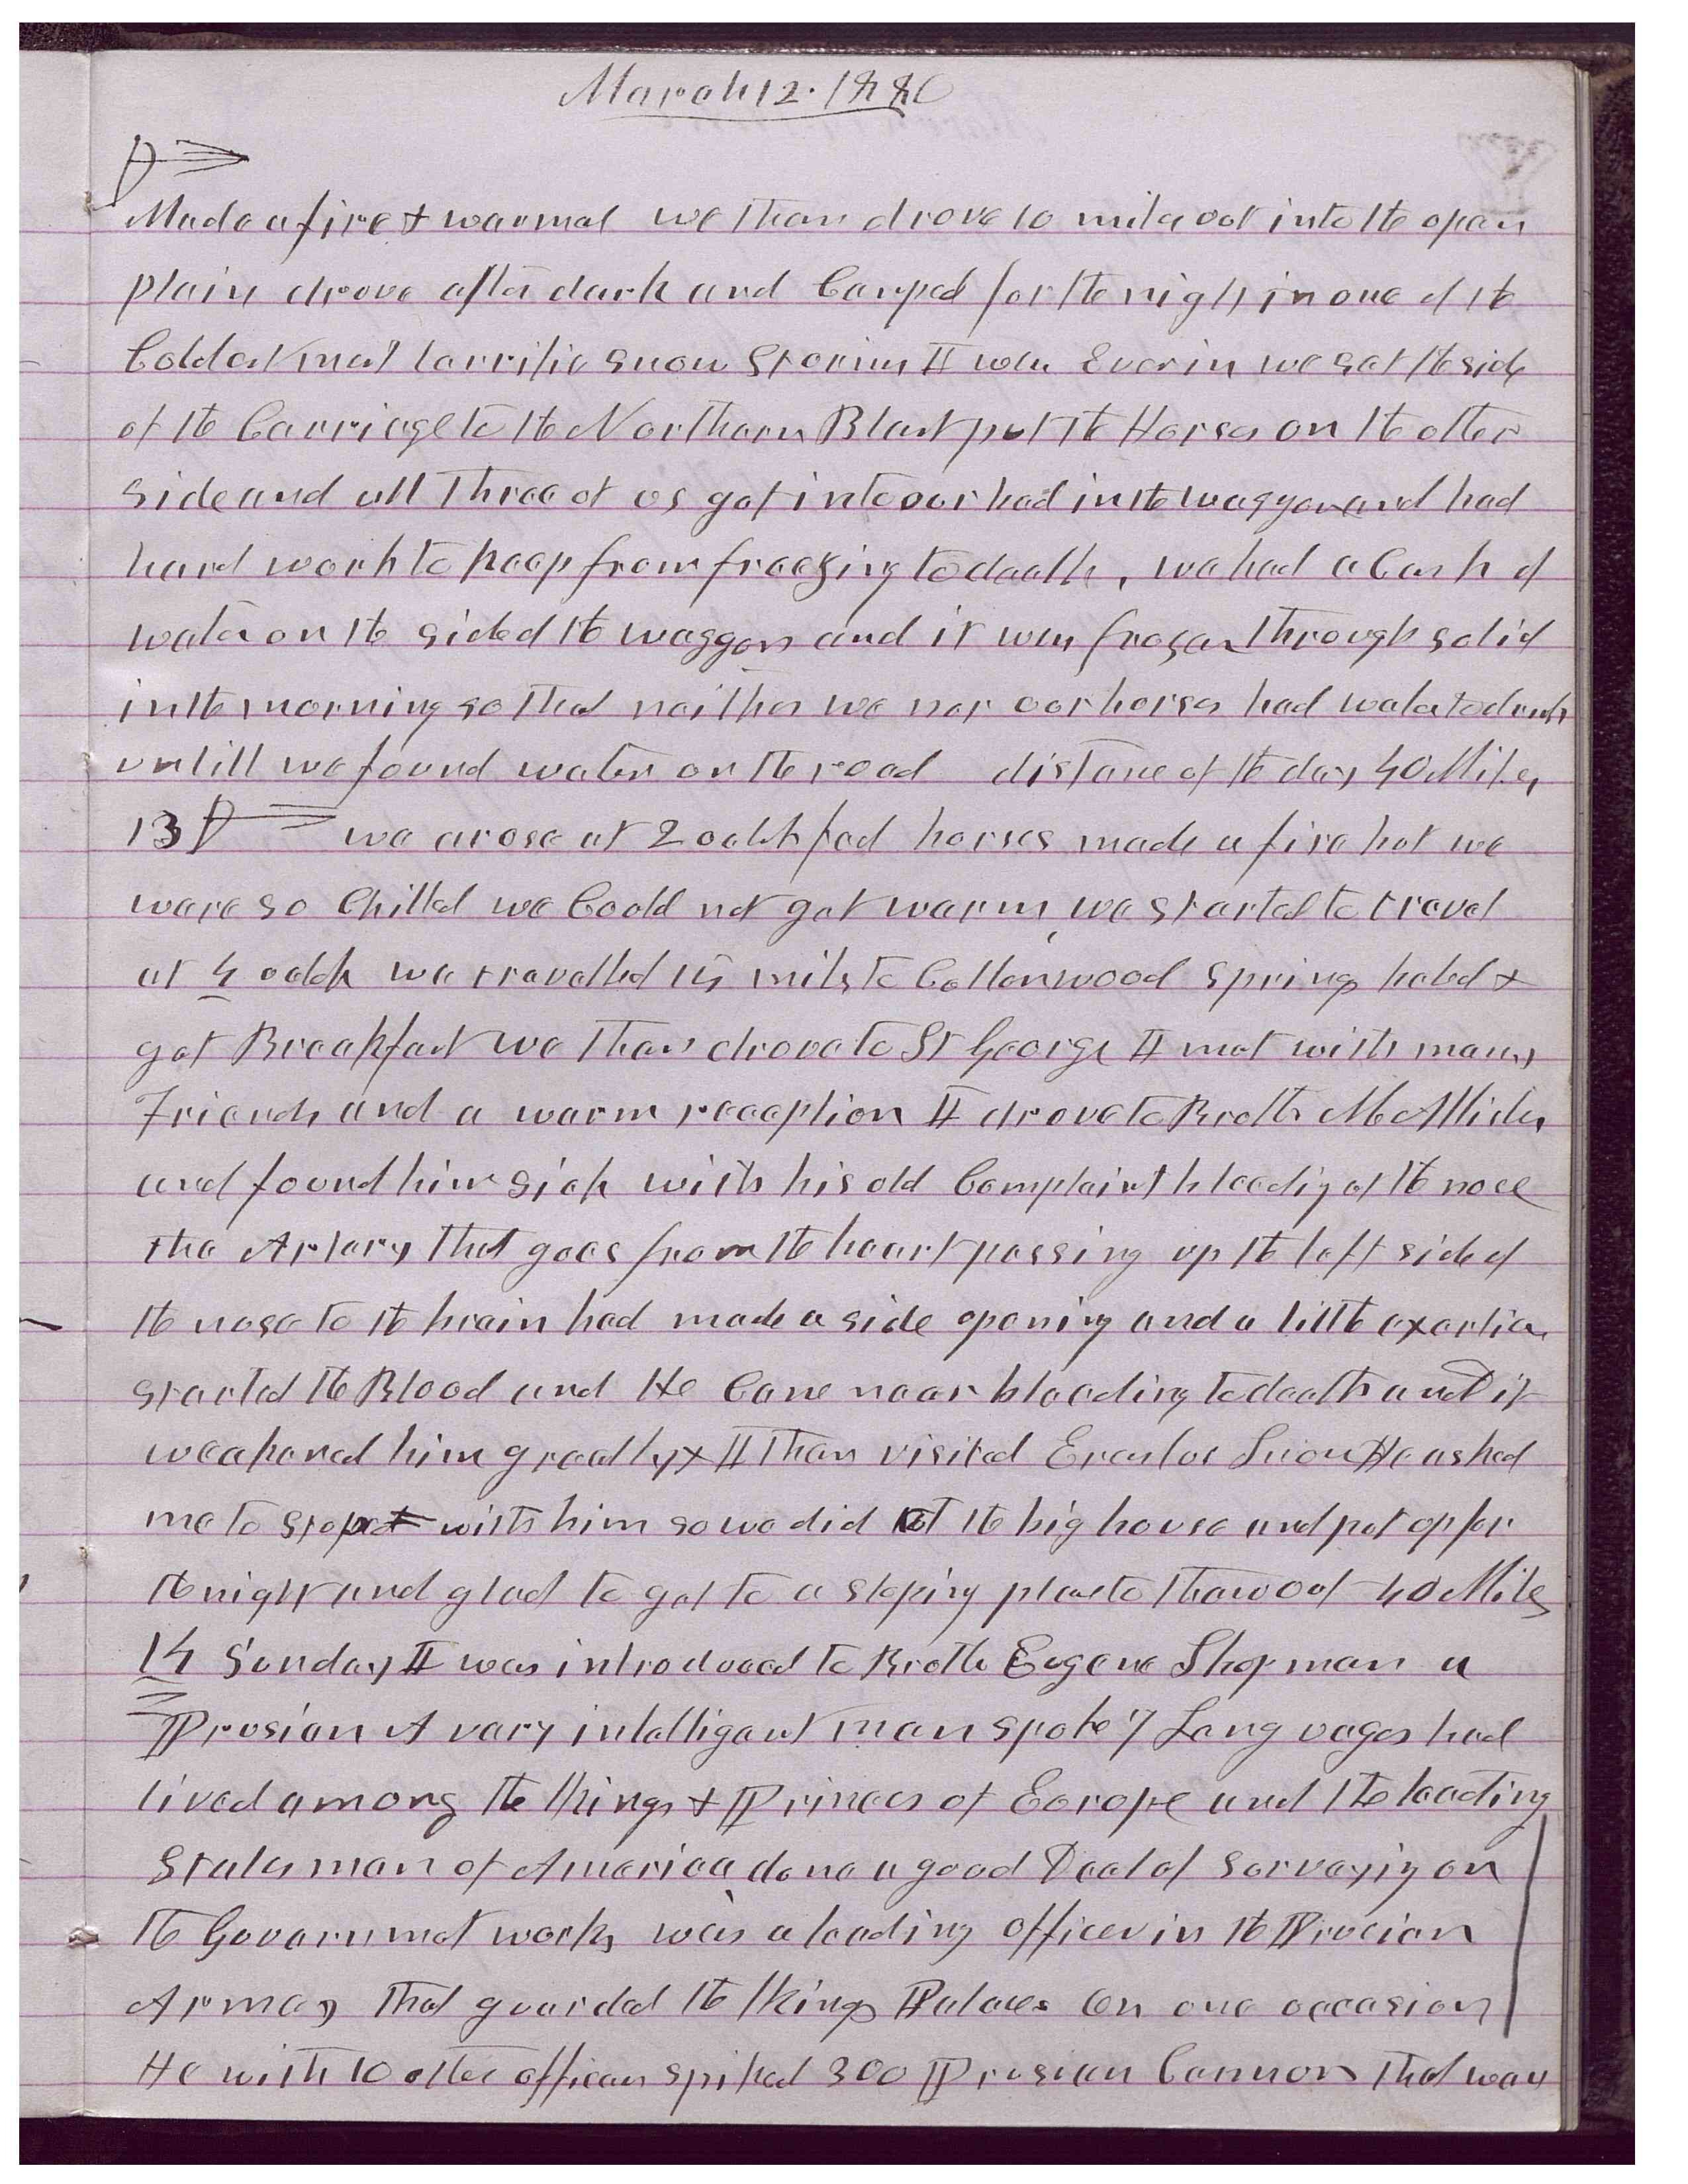 March 12. 1880
Made a fire & warmed we then drove 10 mile out into the open
plain drove after dark and Camped for the night in one of the
Coldest most terrific snow storms I was Ever in we set the side
of the Carriage to the Northern Blast put the Horses on the other
side and all three of us got into our bed in the waggon and had
hard work to keep from freezing to death, we had a Cask of
water on the side of the waggon and it was frozen through solid
in the morning so that neither we nor our horses had water to drink
untill we found water on the road distane of the day 40 Miles
13 we arose at 2 oclk fed horses made a fire but we
ware so Chilled we Could not get warm, we started to travel
at 4 oclok we travelled 15 mils to Cottonwood Springs halted &
got Breakfast we then drove to St George I met with many
Friends and a warm reception I drove to Brothr McAllister
and found him sick with his old Complaint bleedig at the nose
the Artery that goes from the heart passing up the left side of
the nose to the brain had made a side opening and a little exertion
started the Blood and He Came near bleeding to death and it
weakened him greatly & I then visited Erastus Snow He asked
me to stop with him so we did at the big house and put up for
the night and glad to get to a sleping place to thaw out 40 Miles
14 Sunday I was introduced to Brothr Eugene Shopman a
Prusian A very intelligent man spoke 7 Languages had
lived among the Kings & Princes of Europe and the leading
States man of America done a good Deal of Surveyig on
the Governmet works was a leading officer in the Prucian
Armey that guarded the Kings Palaces On one occasion
He with 10 other officers spiked 300 Prusian Cannon that was